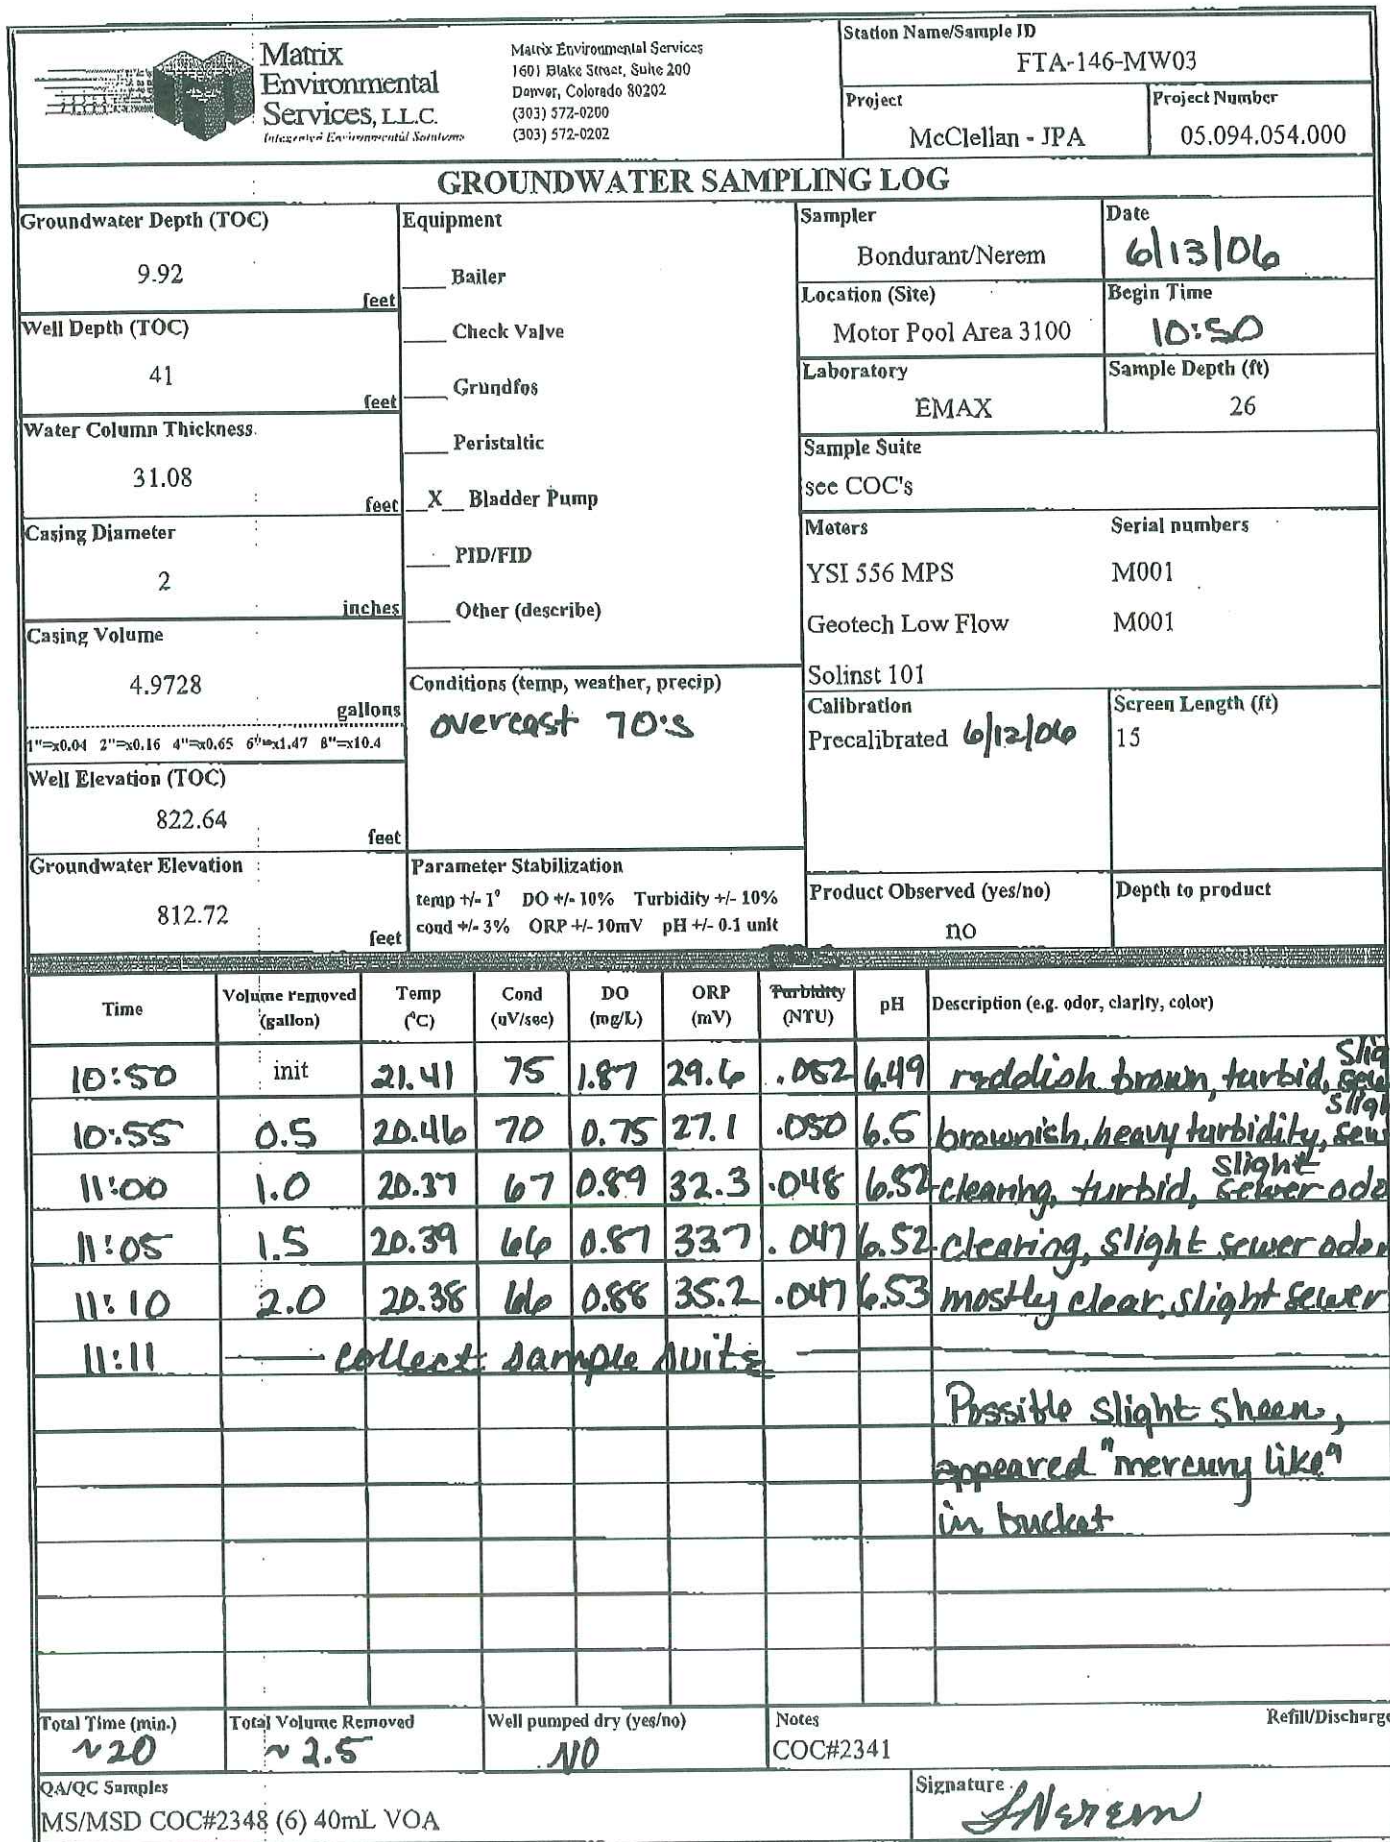 Matrix
Environmental
Services, L.L.C.
Integrated Environmental Solutions
Matrix Environmental Services
1601 Blake Street, Suite 200
Denver, Colorado 80202
(303) 572-0200
(303) 572-0202
Station Name/Sample ID
FTA-146-MW03
Project
McClellan - JPA
Project Number
05.094.054.000
GROUNDWATER SAMPLING LOG
Groundwater Depth (TOC)
9.92
feet
Well Depth (TOC)
41
feet
Water Column Thickness
31.08
feet
Casing Diameter
2
inches
Casing Volume
4.9728
gallons
1"=x0.04 2"=x0.16 4"=x0.65 6"=x1.47 8"=x10.4
Well Elevation (TOC)
822.64
feet
Groundwater Elevation
812.72
feet
Equipment
___ Bailer
___ Check Valve
___ Grundfos
___ Peristaltic
_X_ Bladder Pump
___ PID/FID
___ Other (describe)
Conditions (temp, weather, precip)
overcast 70's
Parameter Stabilization
temp +/- 1° DO +/- 10% Turbidity +/- 10%
cond +/- 3% ORP +/- 10mV pH +/- 0.1 unit
Sampler
Bondurant/Nerem
Date
6/13/06
Location (Site)
Motor Pool Area 3100
Begin Time
10:50
Laboratory
EMAX
Sample Depth (ft)
26
Sample Suite
see COC's
Meters Serial numbers
YSI 556 MPS M001
Geotech Low Flow M001
Solinst 101
Calibration
Precalibrated 6/12/06
Screen Length (ft)
15
Product Observed (yes/no)
no
Depth to product
Time Volume removed (gallon) Temp (°C) Cond (uV/sec) DO (mg/L) ORP (mV) Turbidity (NTU) pH Description (e.g. odor, clarity, color)
10:50 init 21.41 75 1.87 29.6 .052 6.49 reddish brown, turbid, slig
10:55 0.5 20.46 70 0.75 27.1 .050 6.5 brownish, heavy turbidity, sligh
11:00 1.0 20.37 67 0.89 32.3 .048 6.52 clearing, turbid, slight sewer odo
11:05 1.5 20.39 66 0.87 33.7 .047 6.52 clearing, slight sewer odor
11:10 2.0 20.38 66 0.88 35.2 .047 6.53 mostly clear, slight sewer
11:11 collect sample suite
Possible slight sheen,
appeared "mercury like"
in bucket
Total Time (min.)
~20
Total Volume Removed
~2.5
Well pumped dry (yes/no)
NO
Notes
COC#2341
Refill/Discharge
QA/QC Samples
MS/MSD COC#2348 (6) 40mL VOA
Signature
Nerem